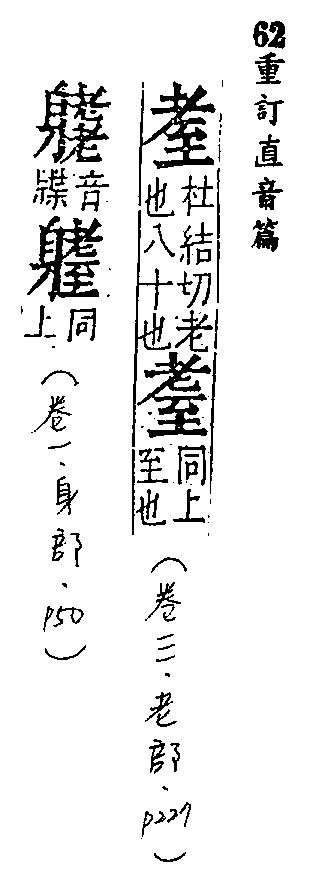 62重訂直音篇
耊杜結切老也八十也耋同上至也(卷三.老部.p227)
音牒 同上(卷一.身部.p50)